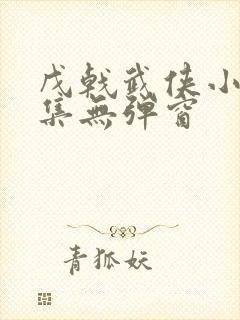 戊戟武侠小
集無弹窗
青狐妖